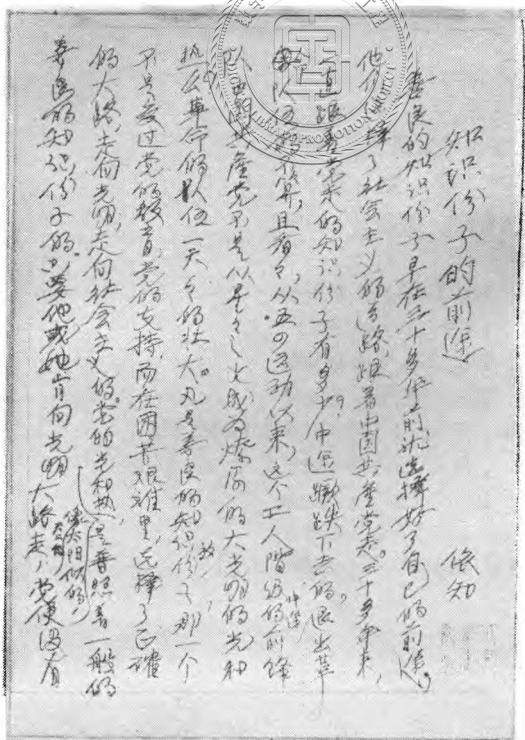 知识份子的前途
依知
善良的知识份子早在三十多年前就选择好了自己的前途。
他们选择了社会主义的道路，跟着中国共产党走。三十多年来，
一直跟着党走的知识份子有多少？中途蹶跌下去的、退出革
命队伍的不算，且看々，从五四运动以来，这个工人阶级的前锋
队中国共产党不是以星々之火成为燎原的大光明的光和
热么？革命的队伍一天々的壮大。凡是善良的知识份子，那一个
不是受过党的教育，党的支持，而在困苦艰难里，选择了正确
的大路，走向光明，走向社会主义的。党的光和热，像太阳似的，是普照着一般的
善良的知识份子的。只要他或她肯向光明大路走，党便没有